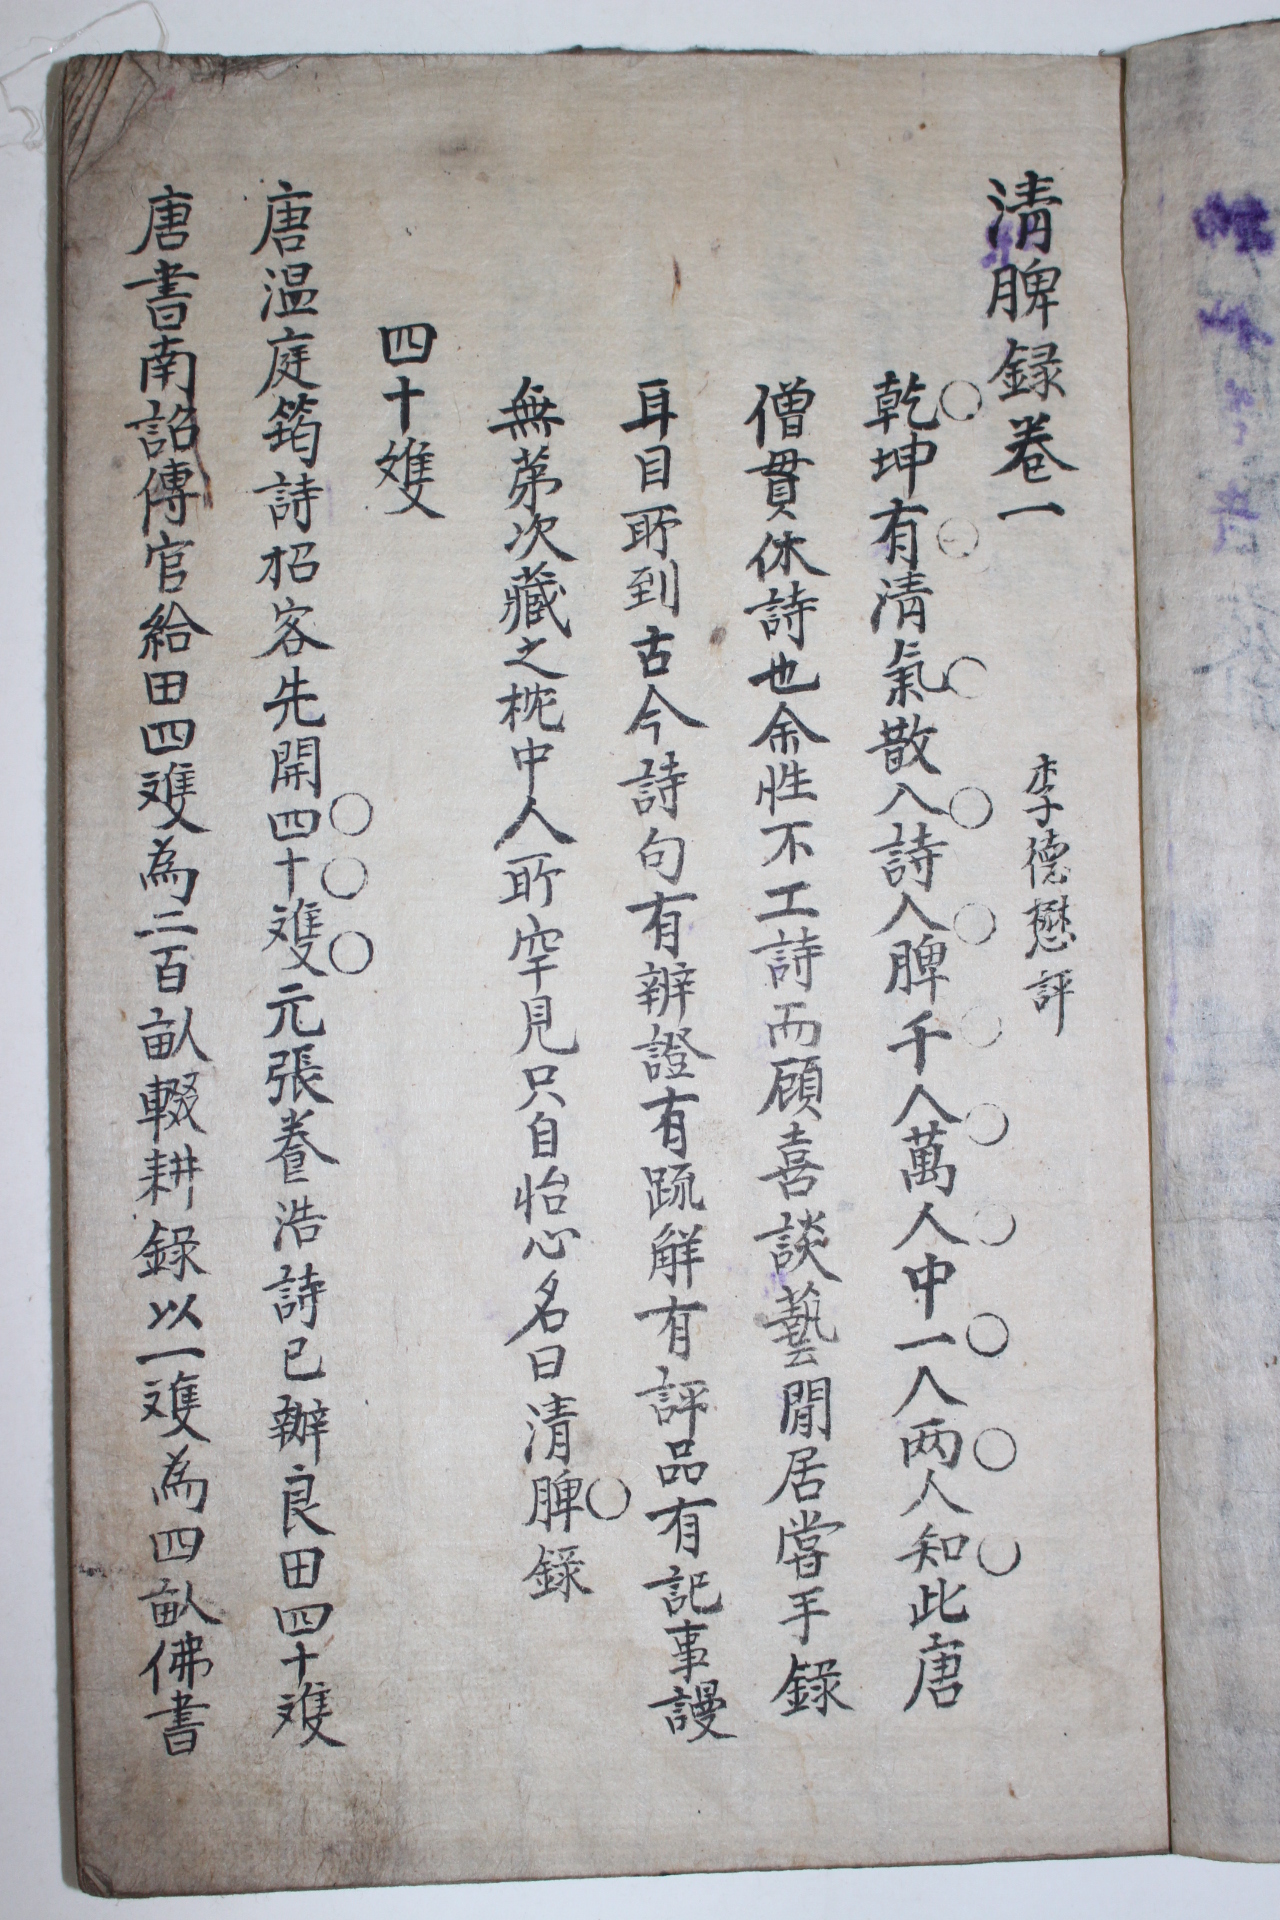 清脾録卷一
李德懋評
乾坤有清氣散入詩人脾千人萬人中一人兩人知此唐
僧貫休詩也余性不工詩而顧喜談藝閒居嘗手錄
耳目所到古今詩句有辨證有疏解有評品有記事謾
無苐次藏之枕中人所罕見只自怡心名曰清脾錄
四十䨥
唐温庭筠詩招客先開四十䨥元張養浩詩已辦良田四十䨥
唐書南詔傳官給田四䨥為二百畝輟耕錄以一䨥為四畝佛書